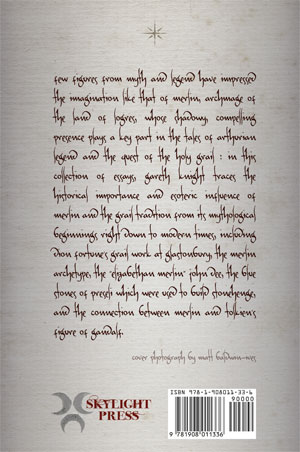 few figures from myth and legend have impressed
the imagination like that of merlin, archmage of
the land of logres, whose shadowy, compelling
presence plays a key part in the tales of arthurian
legend and the quest of the holy grail : in this
collection of essays, gareth knight traces the
historical importance and esoteric influence of
merlin and the grail tradition from its mythological
beginnings right down to modern times, including
dion fortune's grail work at glastonbury, the merlin
archetype, the "elizabethan merlin" john dee, the blue
stones of preseli which were used to build stonehenge,
and the connection between merlin and tolkien's
figure of gandalf.
cover photography by matt baldwin-ives
SKYLIGHT
PRESS
ISBN 978-1-908011-33-6
90000
9 781908 011336